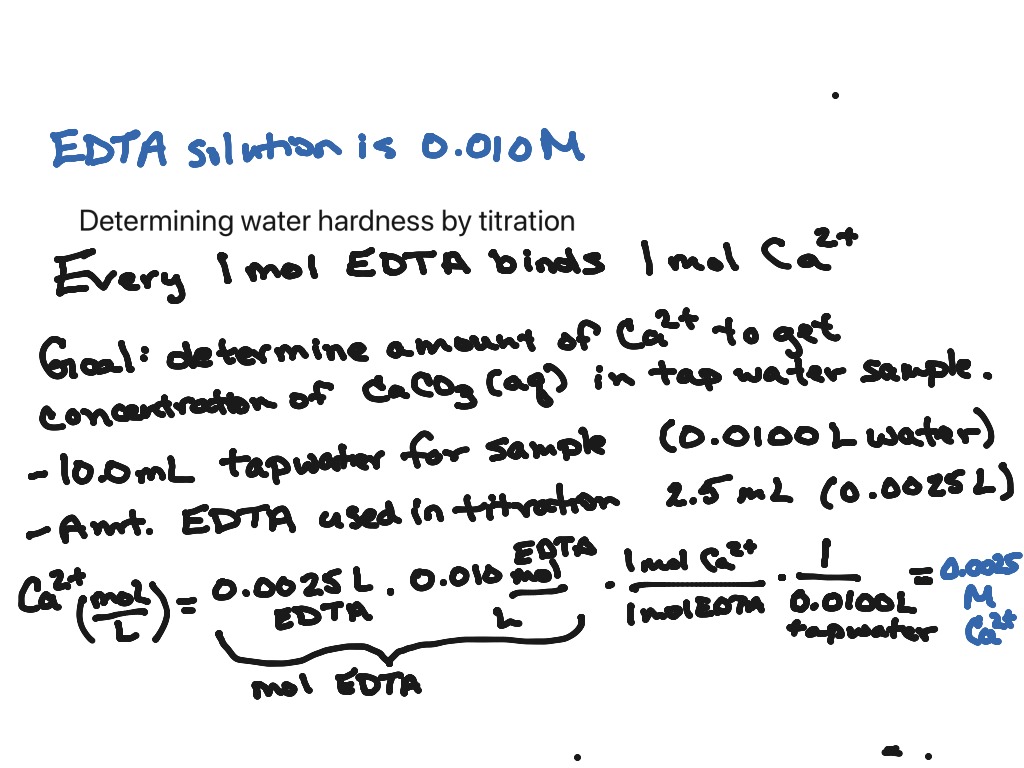 EDTA solution is 0.010M
Determining water hardness by titration
Every 1 mol EDTA binds 1 mol Ca²⁺
Goal: determine amount of Ca²⁺ to get
concentration of CaCO₃ (aq) in tap water sample.
- 10.0mL tapwater for sample (0.0100 L water)
- Amt. EDTA used in titration 2.5 mL (0.0025 L)
Ca²⁺ (mol/L) = 0.0025 L EDTA · 0.010 mol EDTA/L · 1 mol Ca²⁺/1 mol EDTA · 1/0.0100L tapwater = 0.0025 M Ca²⁺
mol EDTA